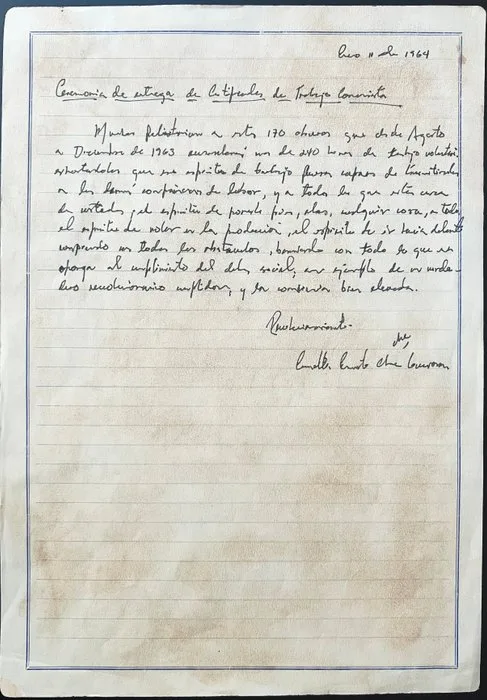 Enero 11 de 1964
Ceremonia de entrega de Certificados de Trabajo Comunista
Muchas felicitaciones a estos 170 obreros que desde Agosto
a Diciembre de 1963 acumularon más de 240 horas de trabajo voluntario,
exhortándolos que ese espíritu de trabajo fueran capaces de transmitírselo
a los demás compañeros de labor, y a todo lo que esté cerca
de ustedes, el espíritu de ponerle pico, alas, cualquier cosa, a todo,
el espíritu de valor en la producción, el espíritu de ir hacia delante
rompiendo con todos los obstáculos, barriendo con todo lo que se
oponga al cumplimiento del deber social, un ejemplo de un verda-
dero revolucionario cumplidor, y la conciencia bien elevada.
Revolucionariamente.
che,
Cmdte. Ernesto Che Guevara